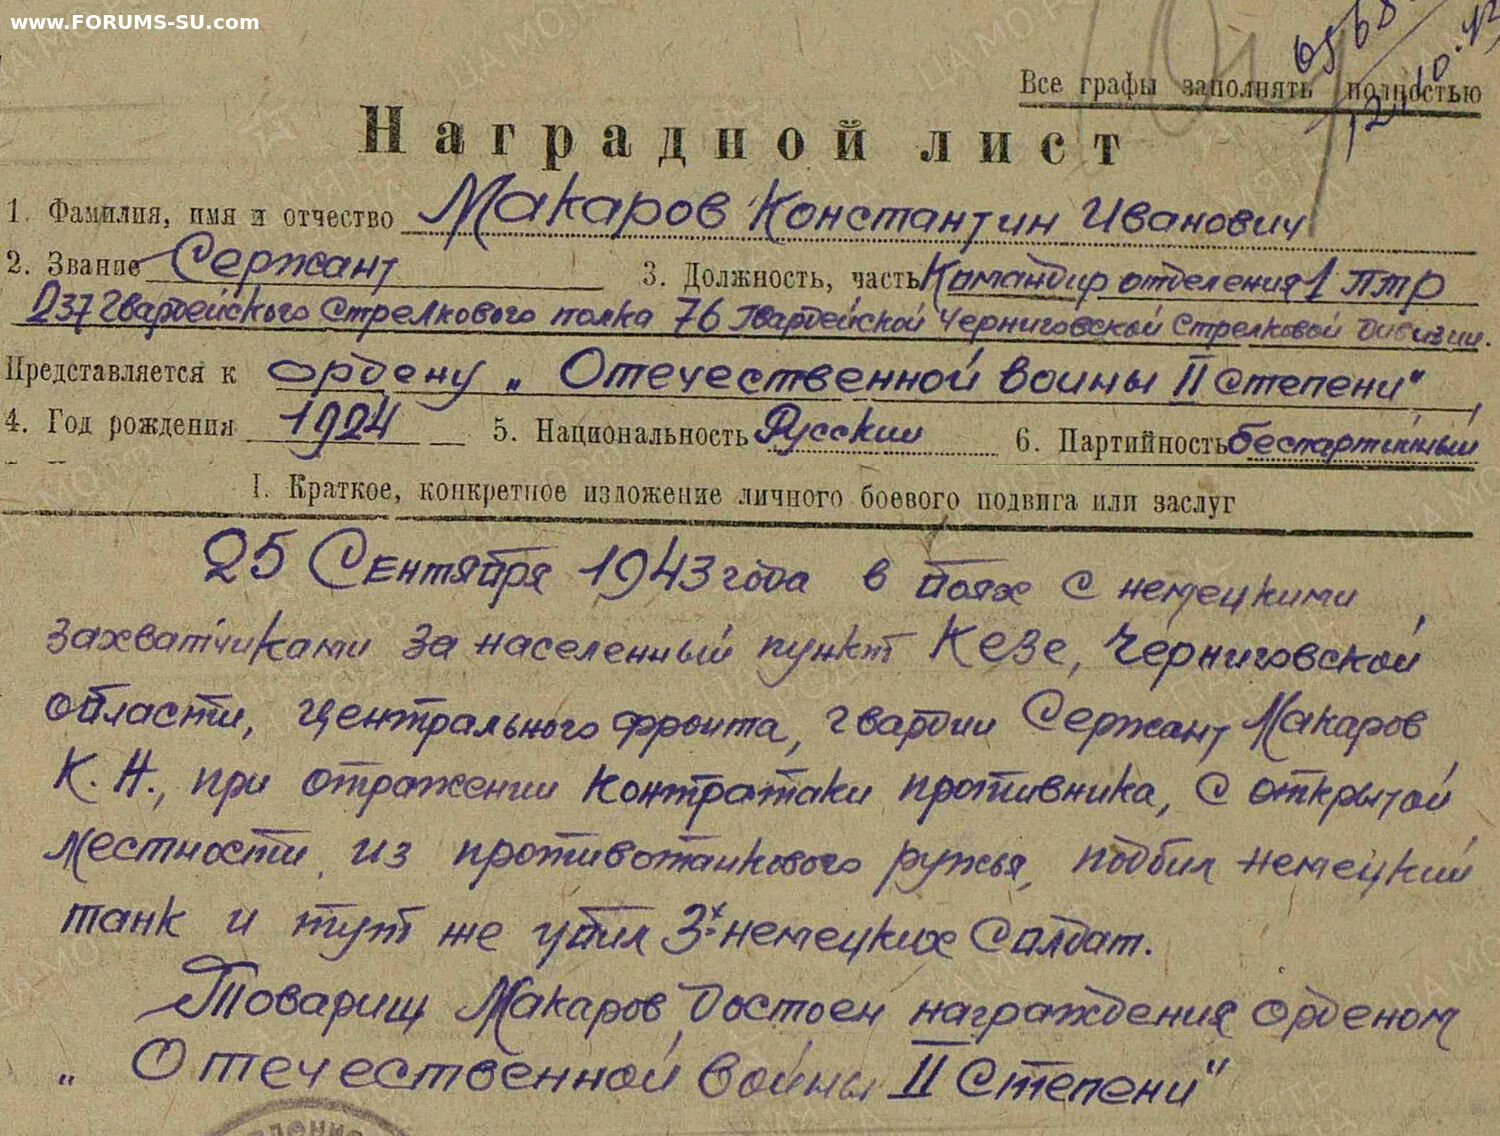 www.FORUMS-SU.com
Все графы заполнять полностью
Наградной лист
1. Фамилия, имя и отчество Макаров Константин Иванович
2. Звание Сержант 3. Должность, часть Командир отделения 1 ПТР
237 Гвардейского Стрелкового полка 76 Гвардейской Черниговской Стрелковой Дивизии.
Представляется к ордену „Отечественной воины II Степени"
4. Год рождения 1924 5. Национальность Русский 6. Партийность беспартийный
I. Краткое, конкретное изложение личного боевого подвига или заслуг
25 Сентября 1943 года в боях с немецкими
захватчиками за населенный пункт Кезе, Черниговской
области, Центрального фронта, гвардии Сержант Макаров
К. И., при отражении контратаки противника, с открытой
местности, из противотанкового ружья, подбил немецкий
танк и тут же убил 3х немецких солдат.
Товарищ Макаров достоен награждения орденом
„Отечественной войны II Степени"